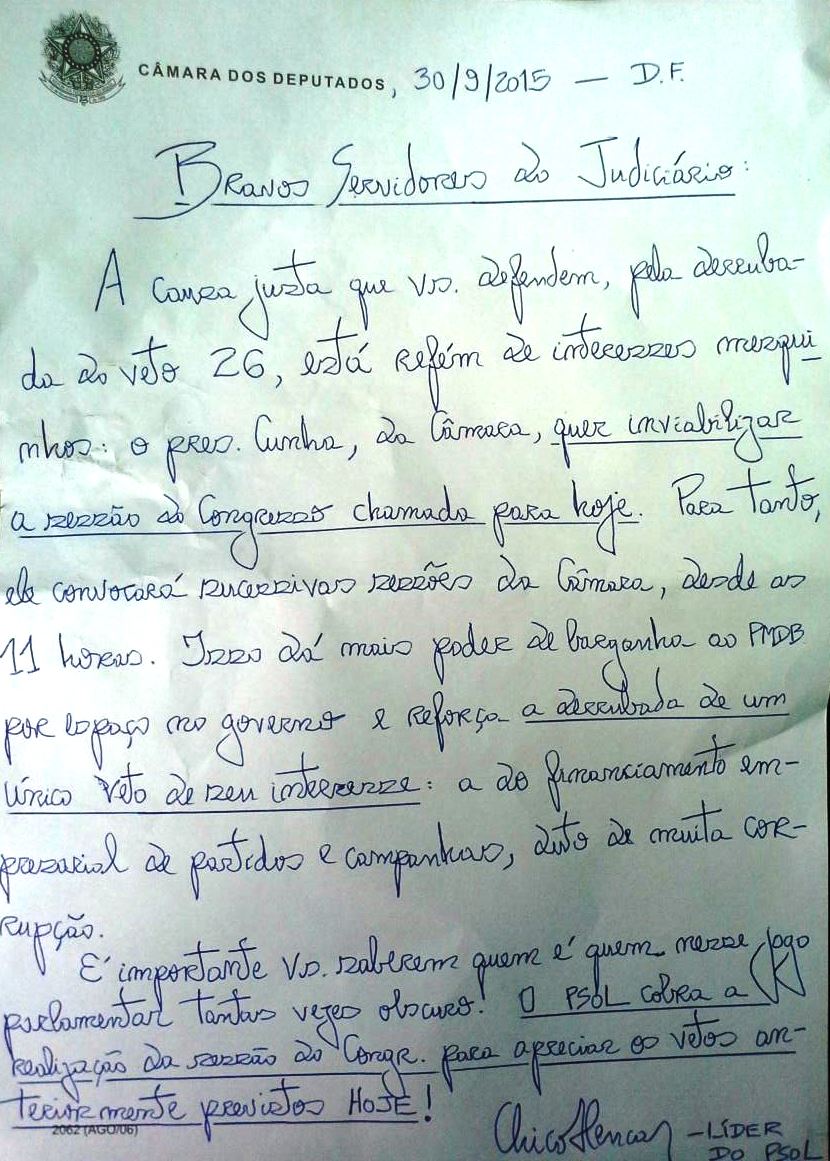 CÂMARA DOS DEPUTADOS, 30/9/2015 — D.F.
Bravos Servidores do Judiciário:
A causa justa que vs. defendem, pela derruba-
da do veto 26, está refém de interesses mesqui
nhos: o pres. Cunha, da Câmara, quer inviabilizar
a sessão do Congresso chamada para hoje. Para tanto,
ele convocará sucessivas sessões da Câmara, desde as
11 horas. Isso dá mais poder de barganha ao PMDB
por espaço no governo e reforça a derrubada de um
único veto de seu interesse: a do financiamento em-
presarial de partidos e campanhas, duto de muita cor-
rupção.
É importante vs. saberem quem é quem nesse jogo
parlamentar tantas vezes obscuro! O PSOL cobra a
realização da sessão do Congr. para apreciar os vetos an-
teriormente previstos HOJE!
2062 (AGO/06)
Chico Alencar – LÍDER
DO PSOL